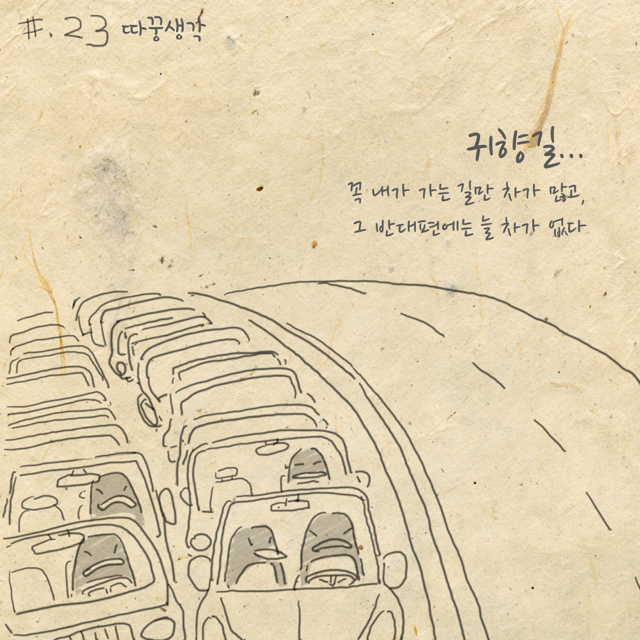 #.23 따꿍생각
귀향길...
꼭 내가 가는 길만 차가 많고,
그 반대편에는 늘 차가 없다